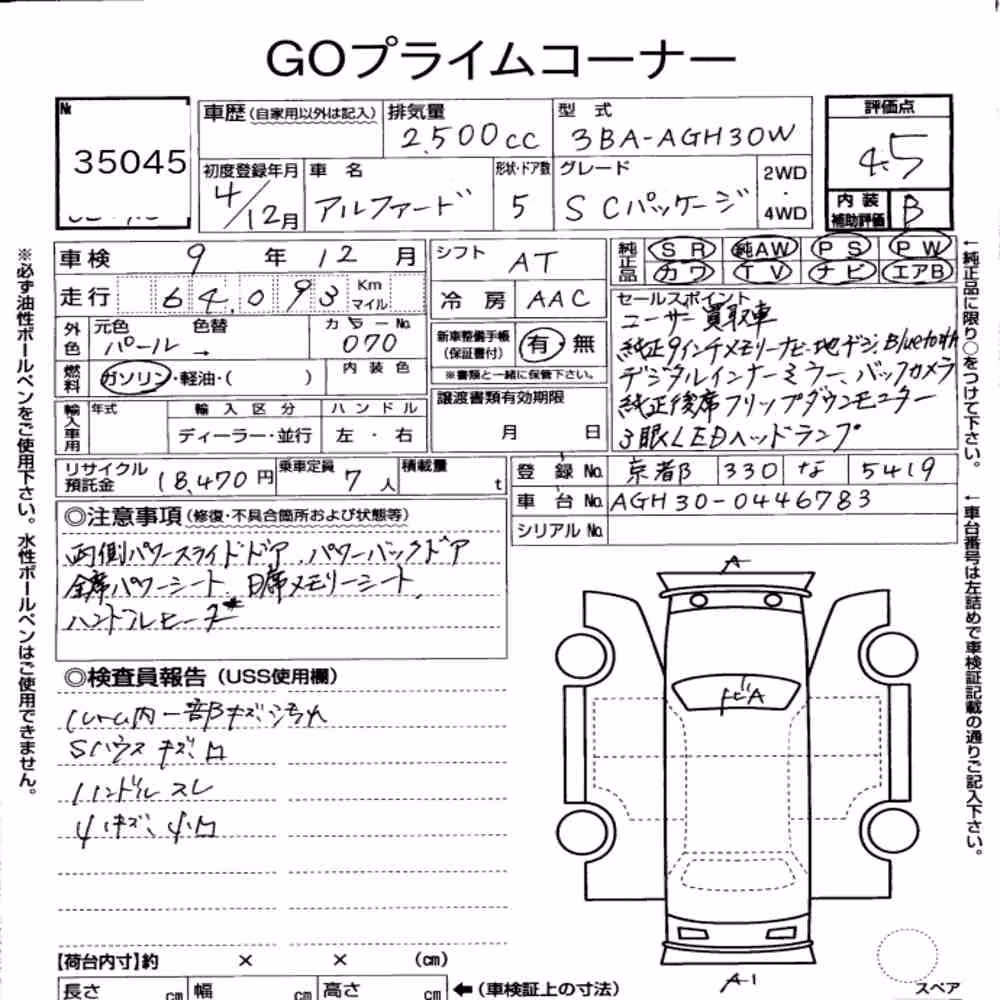 GOプライムコーナー
№
35045
車歴(自家用以外は記入)
排気量
2,500cc
型 式
3BA-AGH30W
評価点
4.5
初度登録年月
4/12月
車 名
アルファード
形状・ドア数
5
グレード
S Cパッケージ
2WD
・
4WD
内 装
補助評価
B
車検 9 年 12 月
走行 64,093 Km マイル
外色
元色 色替
パール →
カラーNo.
070
燃料
ガソリン・軽油・( )
内 装 色
輸入車用
年式
輸 入 区 分
ディーラー・並行
ハ ン ド ル
左 ・ 右
シフト AT
冷 房 AAC
新車整備手帳
(保証書付)
有・無
※書類と一緒に保管下さい。
譲渡書類有効期限
月 日
純正品
SR 純AW PS PW
カワ TV ナビ エアB
セールスポイント
ユーザー買取車
純正9インチメモリーナビ・地デジ、Bluetooth
デジタルインナーミラー、バックカメラ
純正後席フリップダウンモニター
3眼LEDヘッドランプ
リサイクル
預託金
18,470円
乗車定員
7 人
積載量
t
登 録 No. 京都 330 な 5419
車 台 No. AGH30-0446783
シリアル No.
◎注意事項(修復・不具合箇所および状態等)
両側パワースライドドア、パワーバックドア
全席パワーシート、D席メモリーシート、
ハンドルヒーター
◎検査員報告(USS使用欄)
ルーム内一部キズ汚れ
Sハウス キズ、凹
ハンドル スレ
小キズ、小凹
【荷台内寸】約 × × (cm)
長さ cm 幅 cm 高さ cm
←(車検証上の寸法)
A
トビA
A-1
スペア
※必ず油性ボールペンをご使用下さい。水性ボールペンはご使用できません。
←純正品に限り○をつけて下さい。
←車台番号は左詰めで車検証記載の通りご記入下さい。